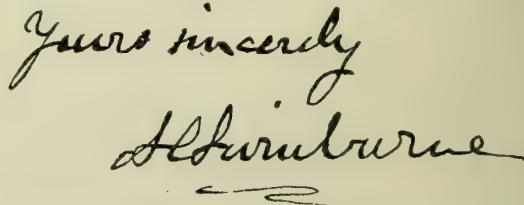 Yours sincerely
A C Swinburne